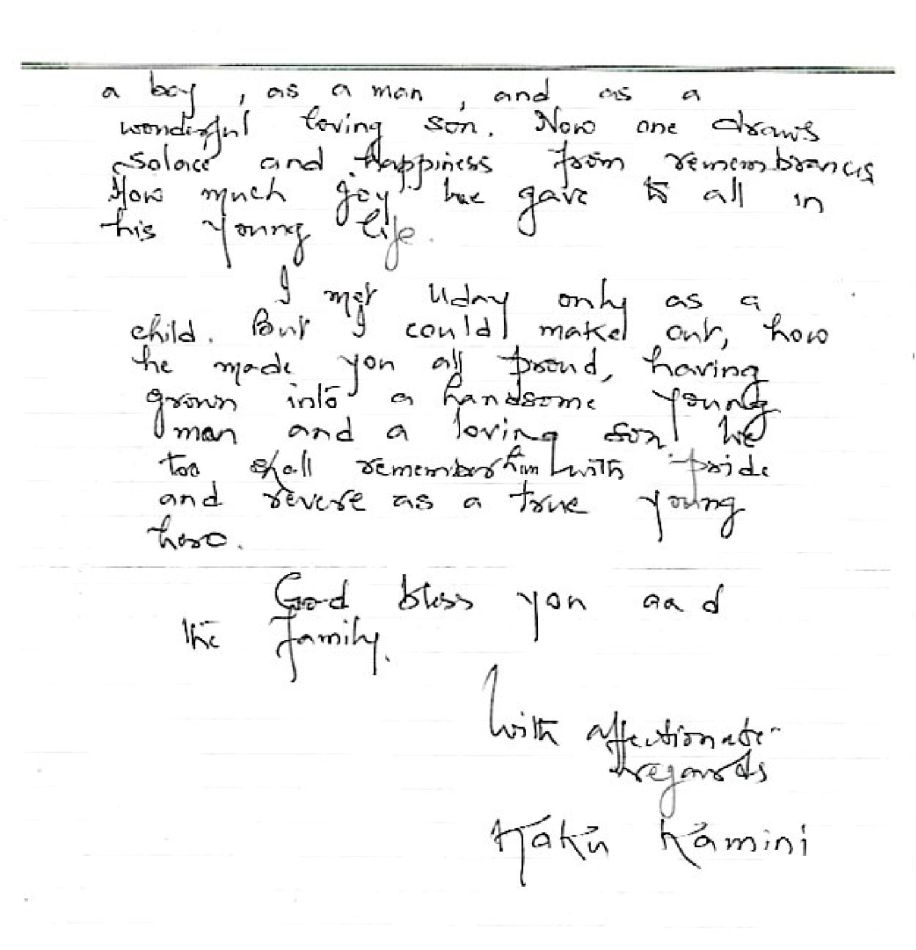 a boy, as a man, and as a
wonderful loving son. Now one draws
solace and Happiness from remembrances
How much joy he gave to all in
his young life.
I met Uday only as a
child. But I could make out, how
he made you all proud, having
grown into a handsome young
man and a loving son. We
too shall remember him with pride
and revere as a true young
hero.
God bless you and
the family.
With affectionate
regards
Kaku Kamini